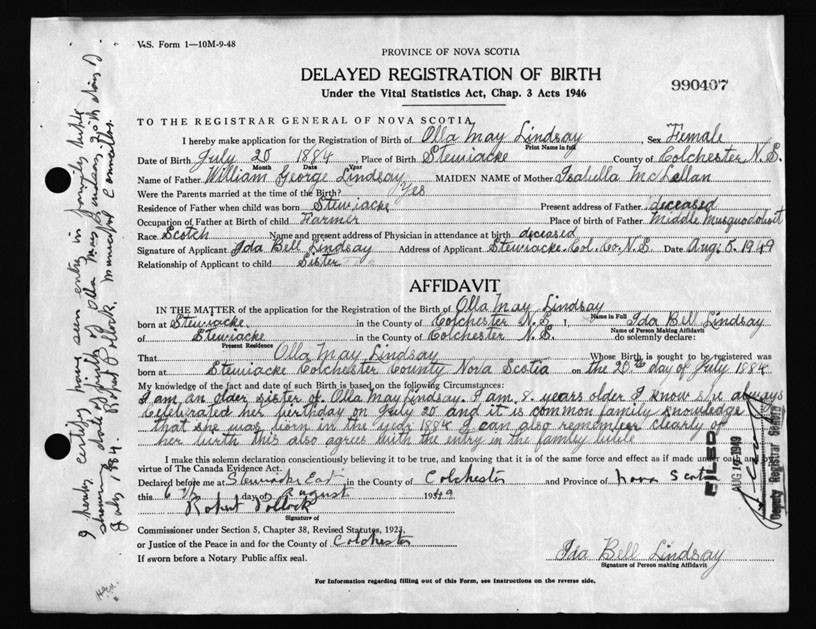 V.S. Form 1—10M-9-48
PROVINCE OF NOVA SCOTIA
DELAYED REGISTRATION OF BIRTH
990407
Under the Vital Statistics Act, Chap. 3 Acts 1946
TO THE REGISTRAR GENERAL OF NOVA SCOTIA
I hereby make application for the Registration of Birth of Olla May Lindsay, Sex Female
Print Name in Full
Date of Birth July 20 1884, Place of Birth Stewiacke County of Colchester N.S.
Month Date Year
Name of Father William George Lindsay MAIDEN NAME of Mother Isabella McLellan
Were the Parents married at time of the Birth? Yes
Residence of Father when child was born Stewiacke Present address of Father deceased
Occupation of Father at Birth of child Farmer Place of birth of Father Middle Musquodoboit
Race Scotch Name and present address of Physician in attendance at birth deceased
Signature of Applicant Ida Bell Lindsay Address of Applicant Stewiacke Col. Co. N.S. Date Aug. 8. 1949
Relationship of Applicant to child Sister
AFFIDAVIT
IN THE MATTER of the application for the Registration of the Birth of Olla May Lindsay
Name in Full
born at Stewiacke in the County of Colchester N.S. I, Ida Bell Lindsay
Name of Person Making Affidavit
of Stewiacke in the County of Colchester N.S. do solemnly declare:
Present Residence
That Olla May Lindsay Whose Birth is sought to be registered was
born at Stewiacke Colchester County Nova Scotia on the 20th day of July 1884
My knowledge of the fact and date of such Birth is based on the following Circumstances:
I am an older sister of Olla May Lindsay. I am 8 years older I know she always
Celebrated her birthday on July 20 and it is common family knowledge
that she was born in the year 1884 I can also remember clearly of
her birth this also agrees with the entry in the family bible
I make this solemn declaration conscientiously believing it to be true, and knowing that it is of the same force and effect as if made under oath and by
virtue of The Canada Evidence Act.
Declared before me at Stewiacke East in the County of Colchester and Province of Nova Scotia
this 6th day of August 1949
Robert Pollock
Signature of
Commissioner under Section 5, Chapter 38, Revised Statutes, 1923,
or Justice of the Peace in and for the County of Colchester
If sworn before a Notary Public affix seal.
Ida Bell Lindsay
Signature of Person making Affidavit
For Information regarding filling out of this Form, see Instructions on the reverse side.
I hereby certify having seen entry in family bible
showing date of birth of Olla May Lindsay
July 1884. Robert Pollock. Municipal Councillor.
FILED
AUG 1949
Deputy Registrar General